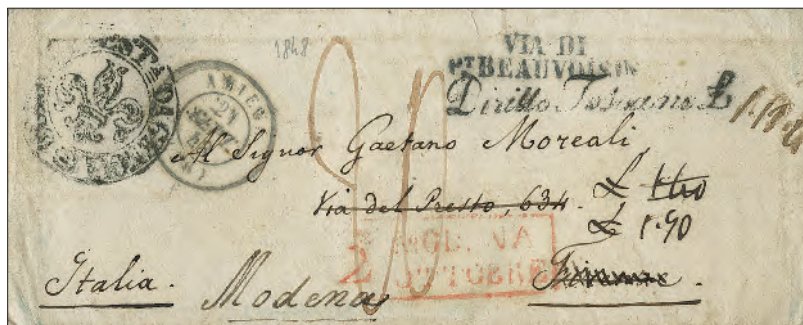 1848
VIA DI
PT BEAUVOISIN
Diritto Toscano £
AMIENS
24
Al Signor Gaetano Moreali
Via del Presto, 634.
£ 1.90
2 MODENA
OTTOBRE
Italia. Modena Firenze.